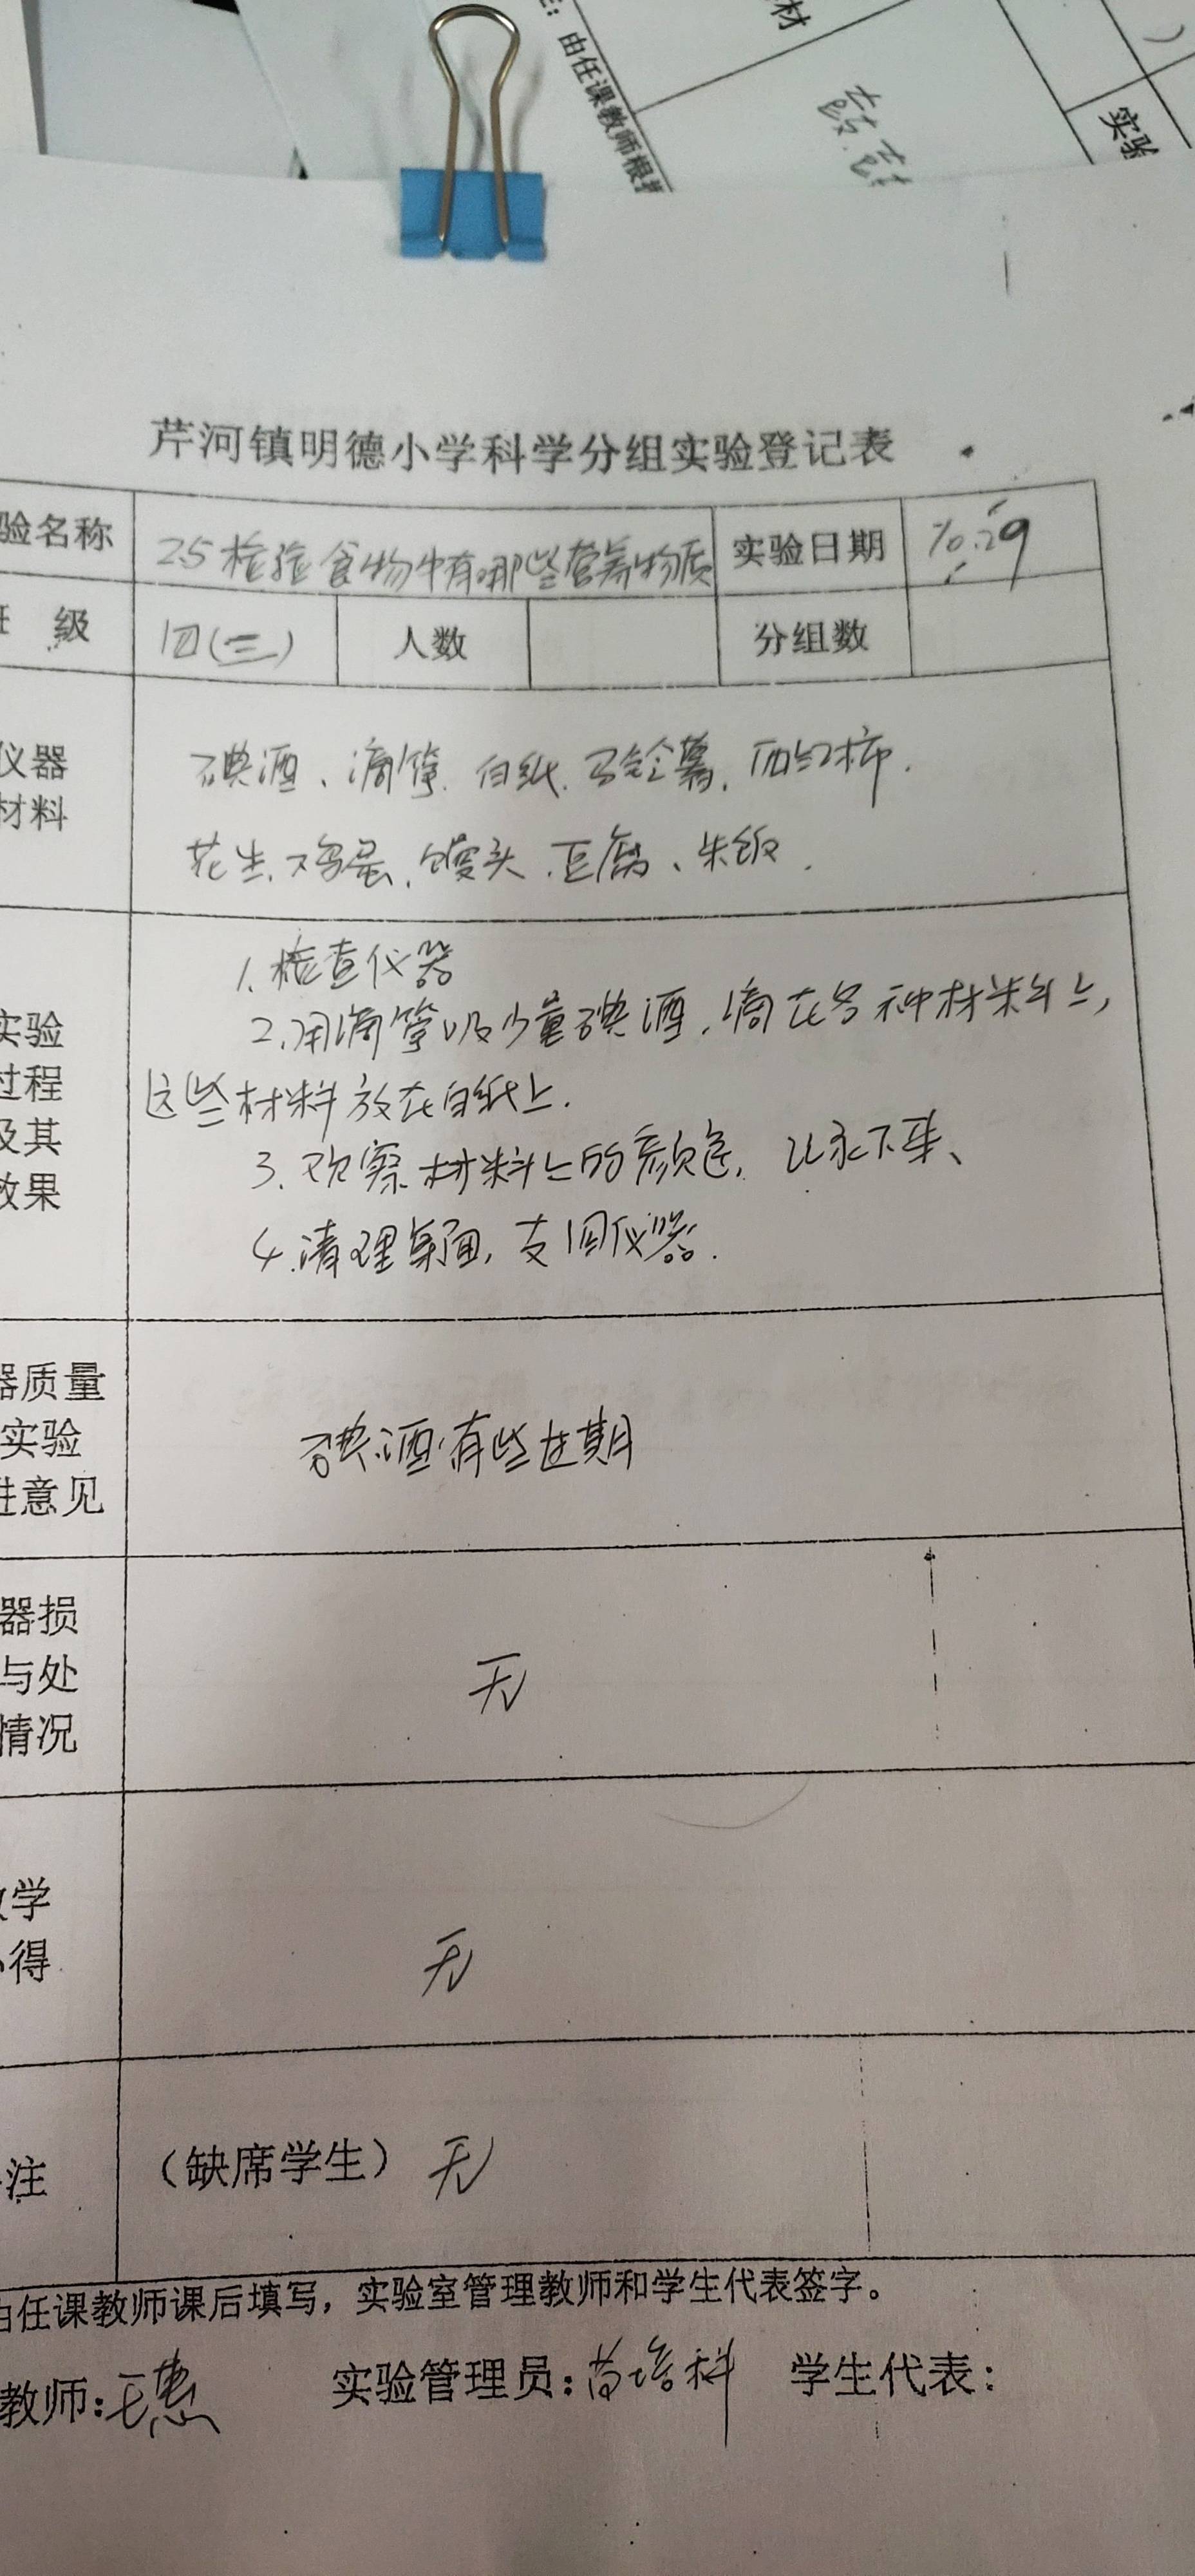 ：由任课教师根据
材
实验
芹河镇明德小学科学分组实验登记表
验名称 25检验食物中有哪些营养物质 实验日期 10.29
级 四(三) 人数 分组数
仪器
材料
碘酒、滴管.白纸.马铃薯,西红柿.
花生.鸡蛋.馒头.豆腐、米饭.
实验
过程
及其
效果
1.检查仪器
2.用滴管吸少量碘酒,滴在各种材料上,
这些材料放在白纸上.
3.观察材料上的颜色,记录下来、
4.清理桌面,支回仪器.
器质量
实验
进意见
碘酒有些过期
器损
与处
情况
无
教学
心得
无
注 （缺席学生）无
由任课教师课后填写，实验室管理教师和学生代表签字。
教师:王惠 实验管理员:苗培科 学生代表: